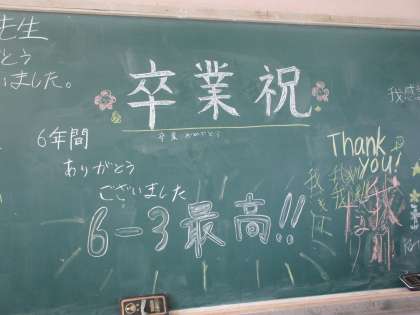 先生
とう
いました。
卒業祝
卒業おめでとう
6年間
ありがとう
ございました
6-3最高!!
Thank
you!
我
我